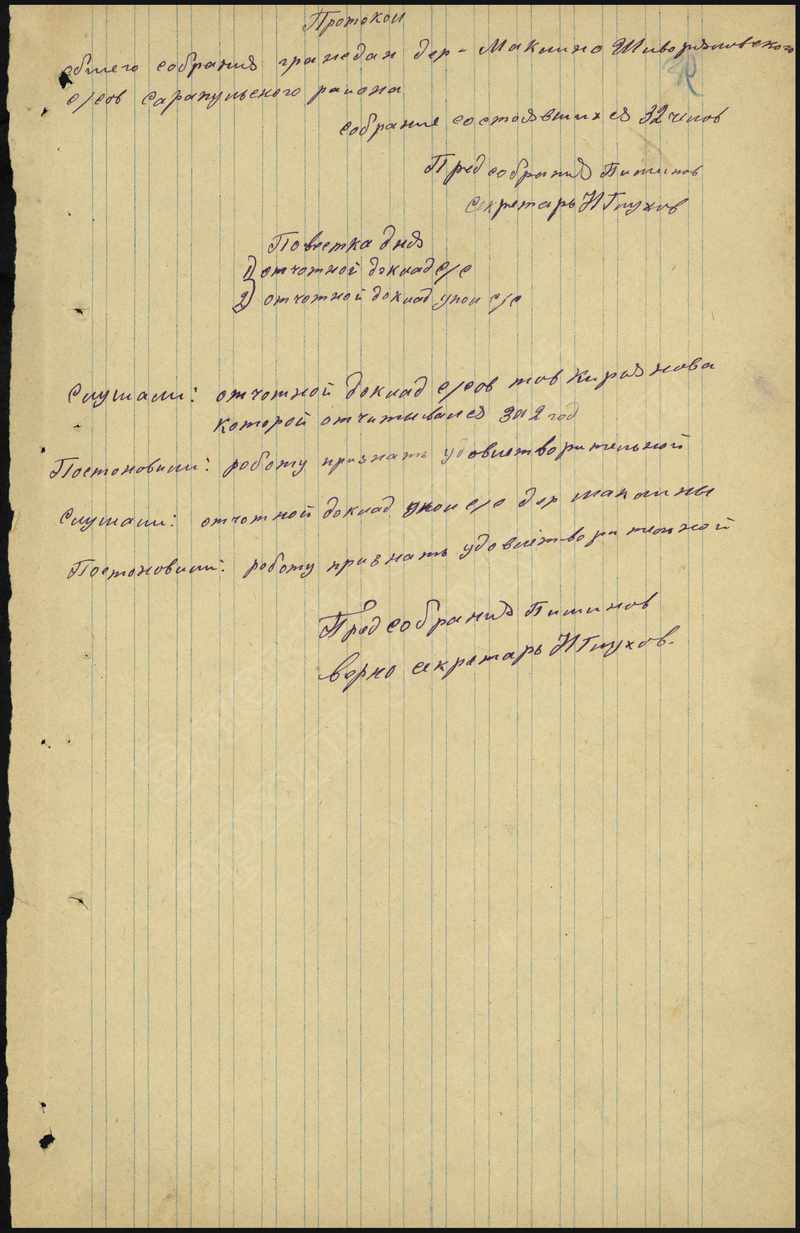 Протокол
общего собрания граждан дер - Макшино Шиворямовского
с/сов Сарапульского района
собрание состоявшихся 32 член
Пред собрания Пишинов
секретарь Н Глухов
Повестка дня
1) отчотной доклад с/с
2) отчотной доклад упол с/с
Слушали: отчотной доклад с/сов тов Кирьянова
которой отчитывался за 2 год
Постоновили: роботу признать удовлетворительной
Слушали: отчотной доклад упол с/с дер
Постоновили: роботу признать удовлетворительной
Пред собрания Пишинов
верно секретарь Н Глухов.